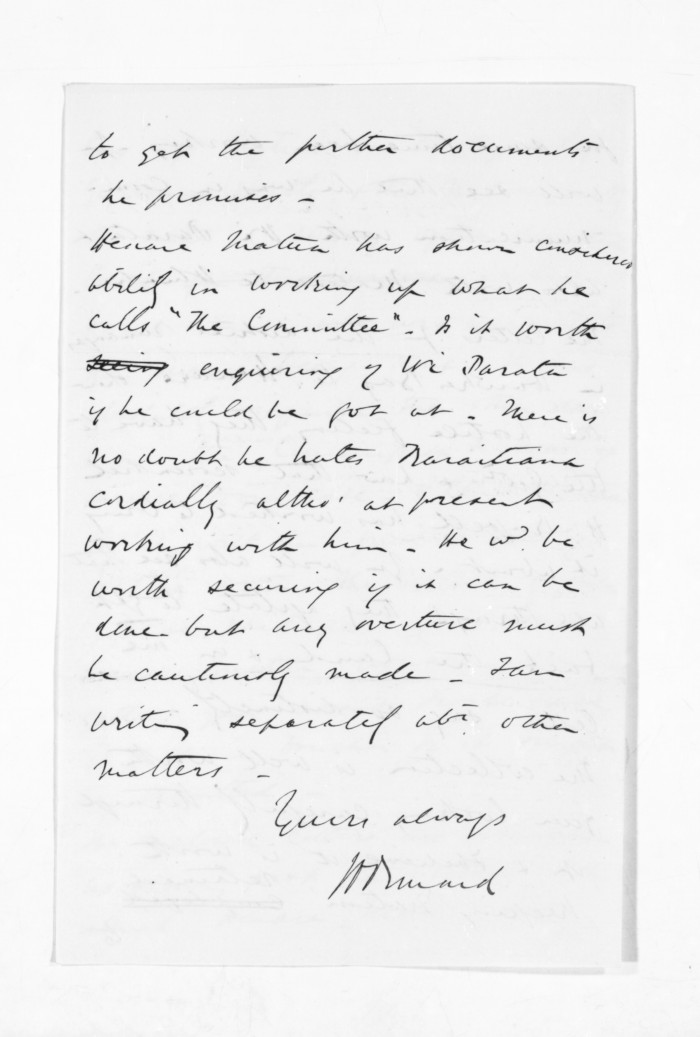 to get the further documents
he promises -
Henare Matua has shown considerable
ability in working up what he
calls "The Committee". Is it worth
seeing enquiring of Wi Parata
if he could be got at. There is
no doubt he hates Karaitiana
cordially altho' at present
working with him. He wd. be
worth securing if it can be
done. but any overture must
be cautiously made - I am
writing separately abt. other
matters -
Yours always
JD Ormond